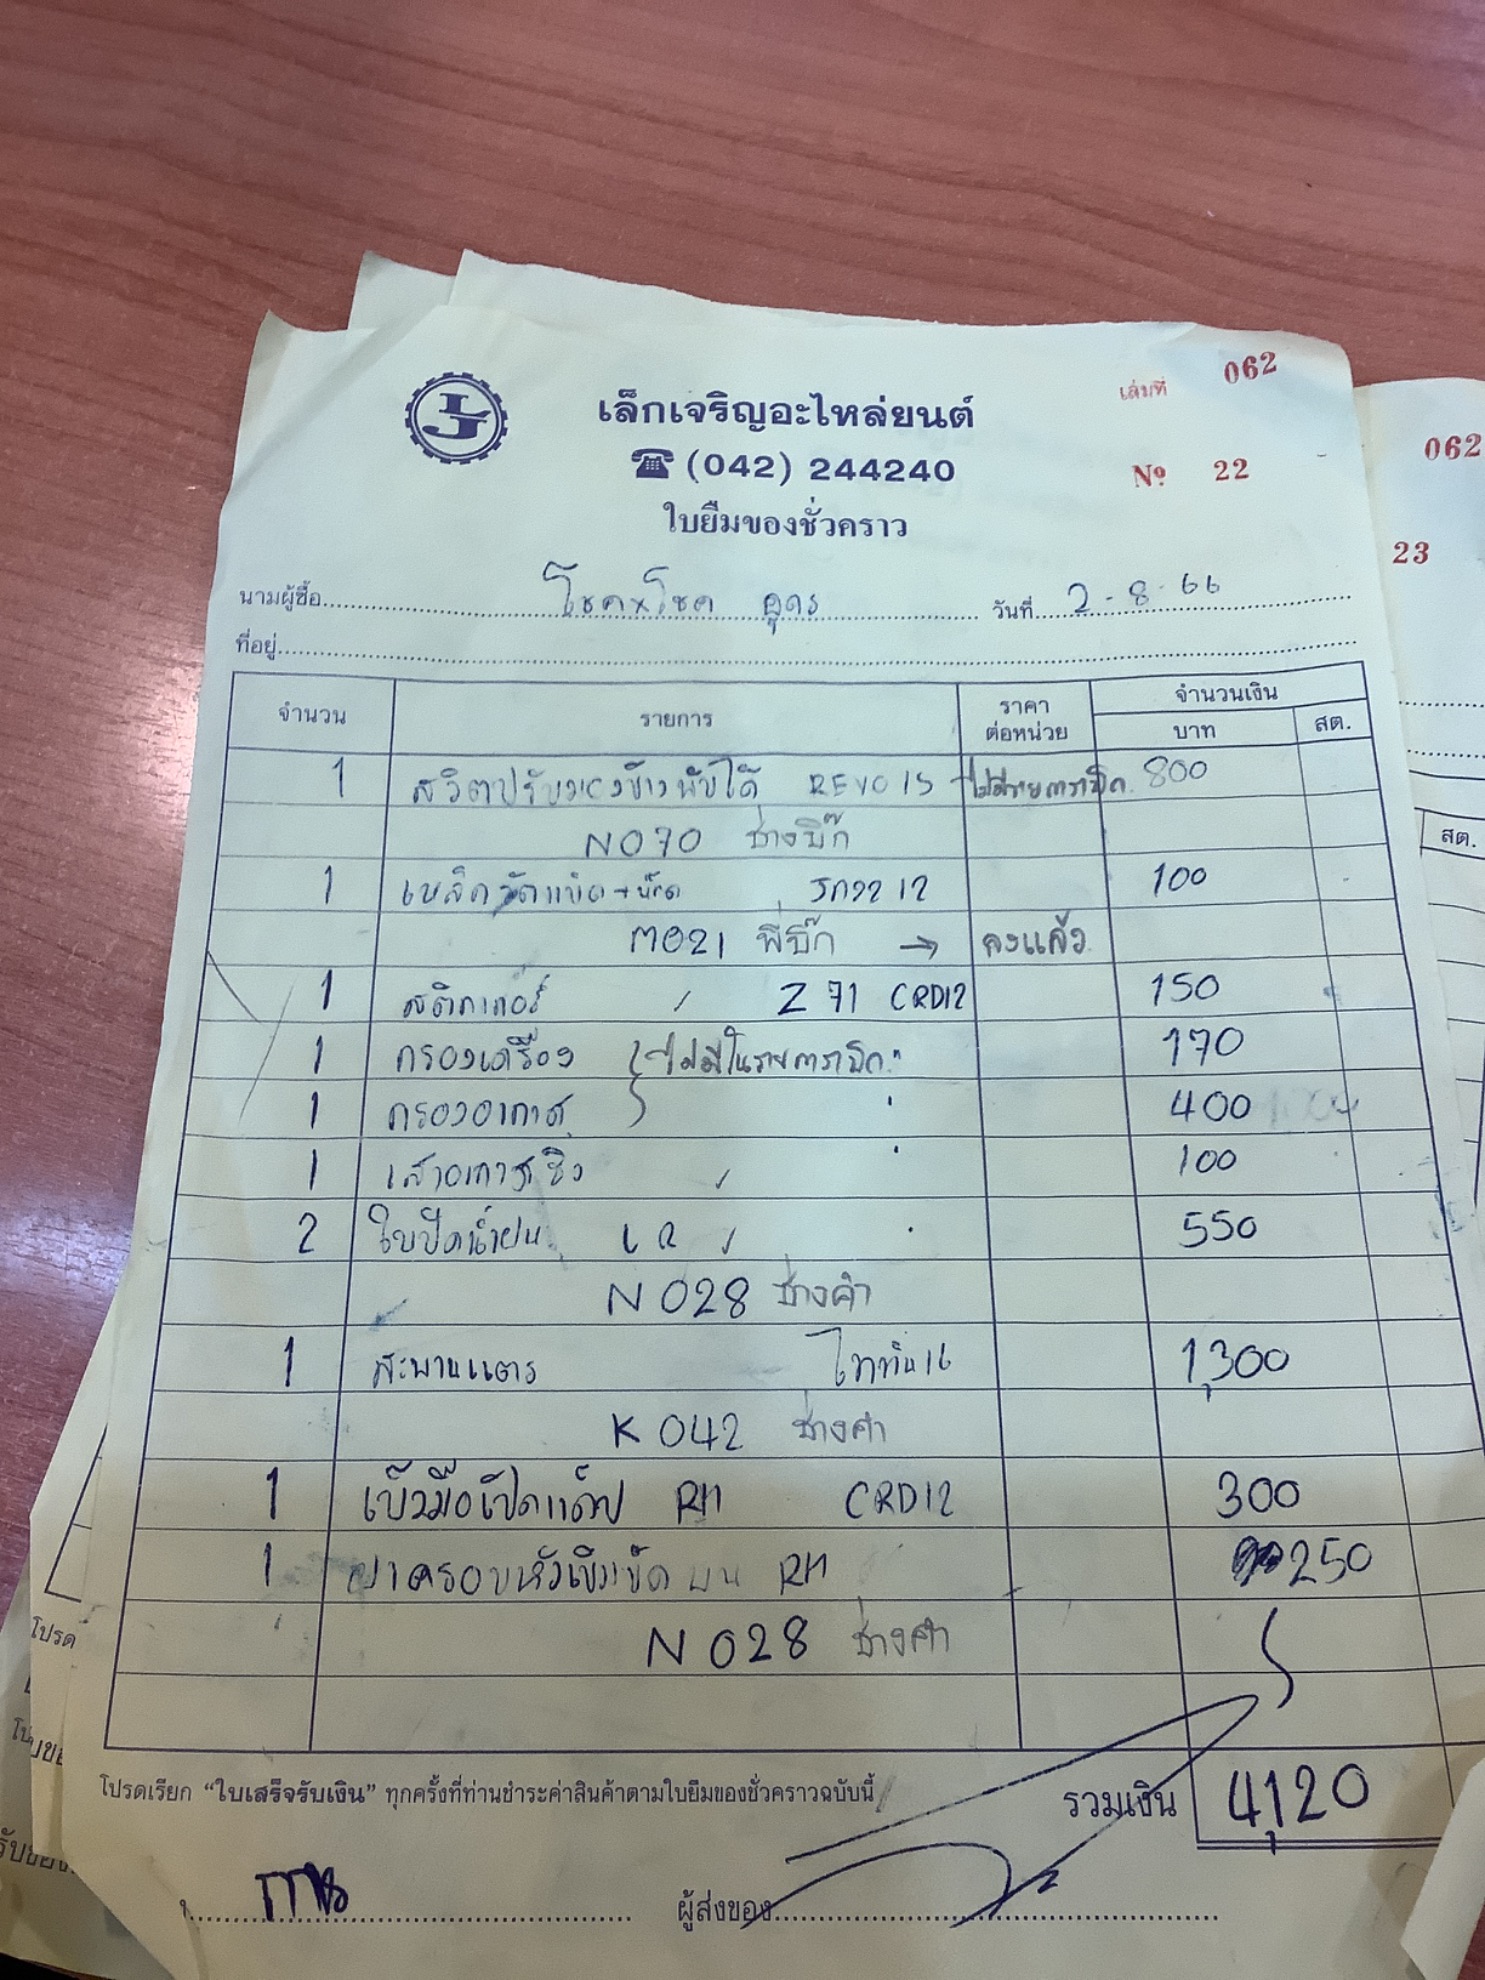 เล่มที่ 062
เล็กเจริญอะไหล่ยนต์
(042) 244240
Nº 22
ใบยืมของชั่วคราว
นามผู้ซื้อ โชค×โชค อุดร วันที่ 2-8-66
ที่อยู่
จำนวน รายการ ราคาต่อหน่วย จำนวนเงิน
บาท สต.
1 REVO 15 800
N070 ช่างบิ๊ก
1 12 100
M021 พี่บิ๊ก → ลงแล้ว
1 สติกเกอร์ Z71 CRD12 150
1 กรองเครื่อง ไม่มีในรายการบิ๊ก 170
1 กรองอากาศ 400
1 เสาอากาศซิ่ง 100
2 ใบปัดน้ำฝน LR 550
N028 ช่างคำ
1 สะพานแตร ไททัน16 1,300
K042 ช่างคำ
1 เบ้ามือเปิดแค็ป RH CRD12 300
1 ฝาครอบหัวเข็มขัด บน RH 250
N028 ช่างคำ
โปรดเรียก “ใบเสร็จรับเงิน” ทุกครั้งที่ท่านชำระค่าสินค้าตามใบยืมของชั่วคราวฉบับนี้
รวมเงิน 4,120
ผู้ส่งของ
062
23
สต.
โปรด